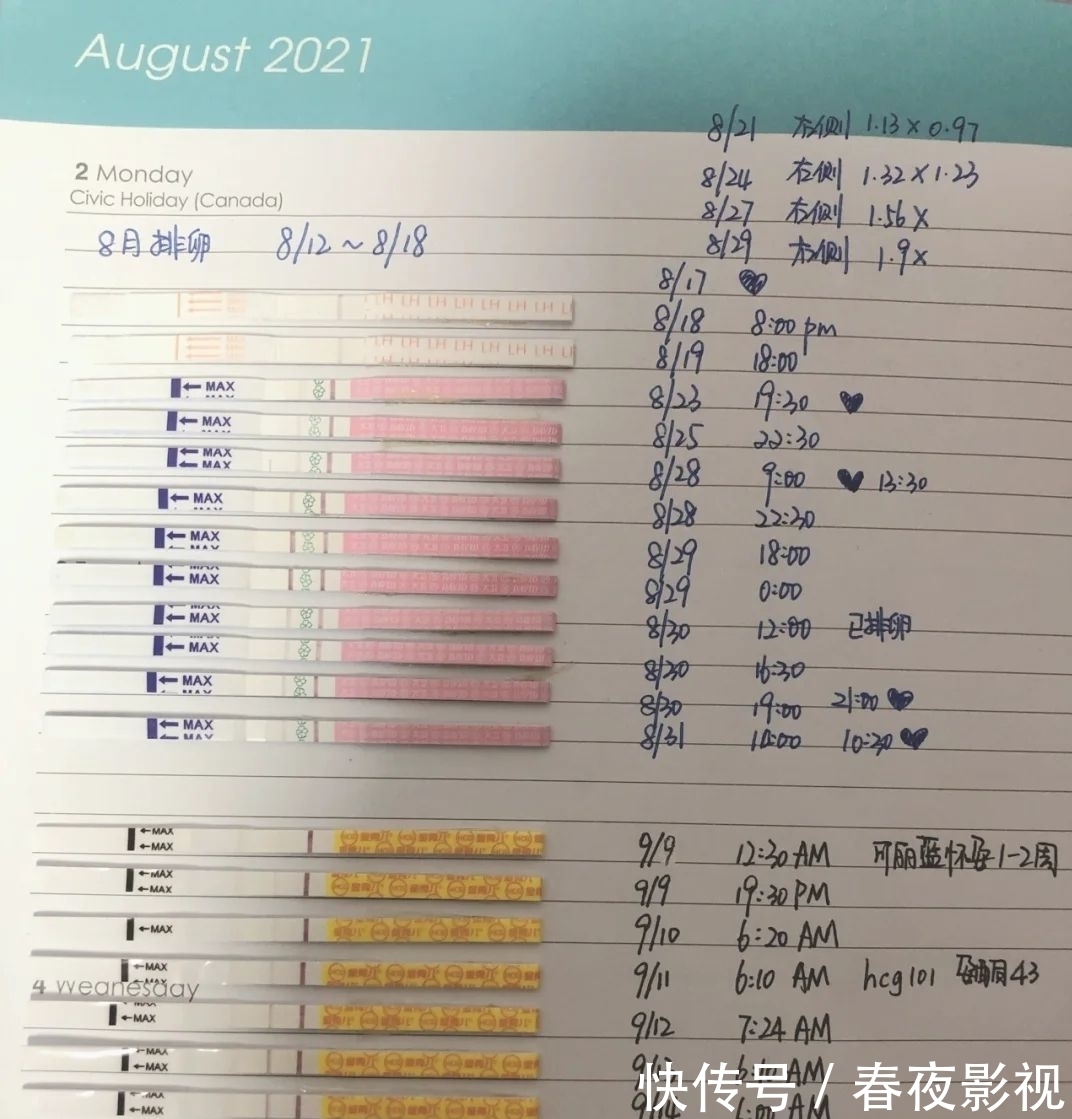 August 2021
8/21 右侧 1.13×0.97
2 Monday
8/24 右侧 1.32×1.23
Civic Holiday (Canada)
8/27 右侧 1.56×
8月排卵 8/12~8/18
8/29 右侧 1.9×
8/17
LH LH LH LH LH LH LH
8/18 8:00 pm
LH LH LH LH LH LH LH
8/19 18:00
←MAX
8/23 19:30
←MAX
8/25 22:30
←MAX
←MAX
8/28 9:00 13:30
←MAX
8/28 22:30
←MAX
8/29 18:00
←MAX
8/29 0:00
←MAX
8/30 12:00 已排卵
←MAX
8/30 16:30
←MAX
8/30 19:00 21:00
←MAX
8/31 10:30
←MAX
←MAX
9/9 12:30 AM 可丽蓝怀孕1-2周
←MAX
←MAX
9/9 19:30 PM
←MAX
9/10 6:20 AM
←MAX
9/11 6:10 AM hcg101 孕酮43
4 Wednesday
←MAX
9/12 7:24 AM
←MAX
←MAX
AM
←MAX
9/14 AM
快传号 / 春夜影视